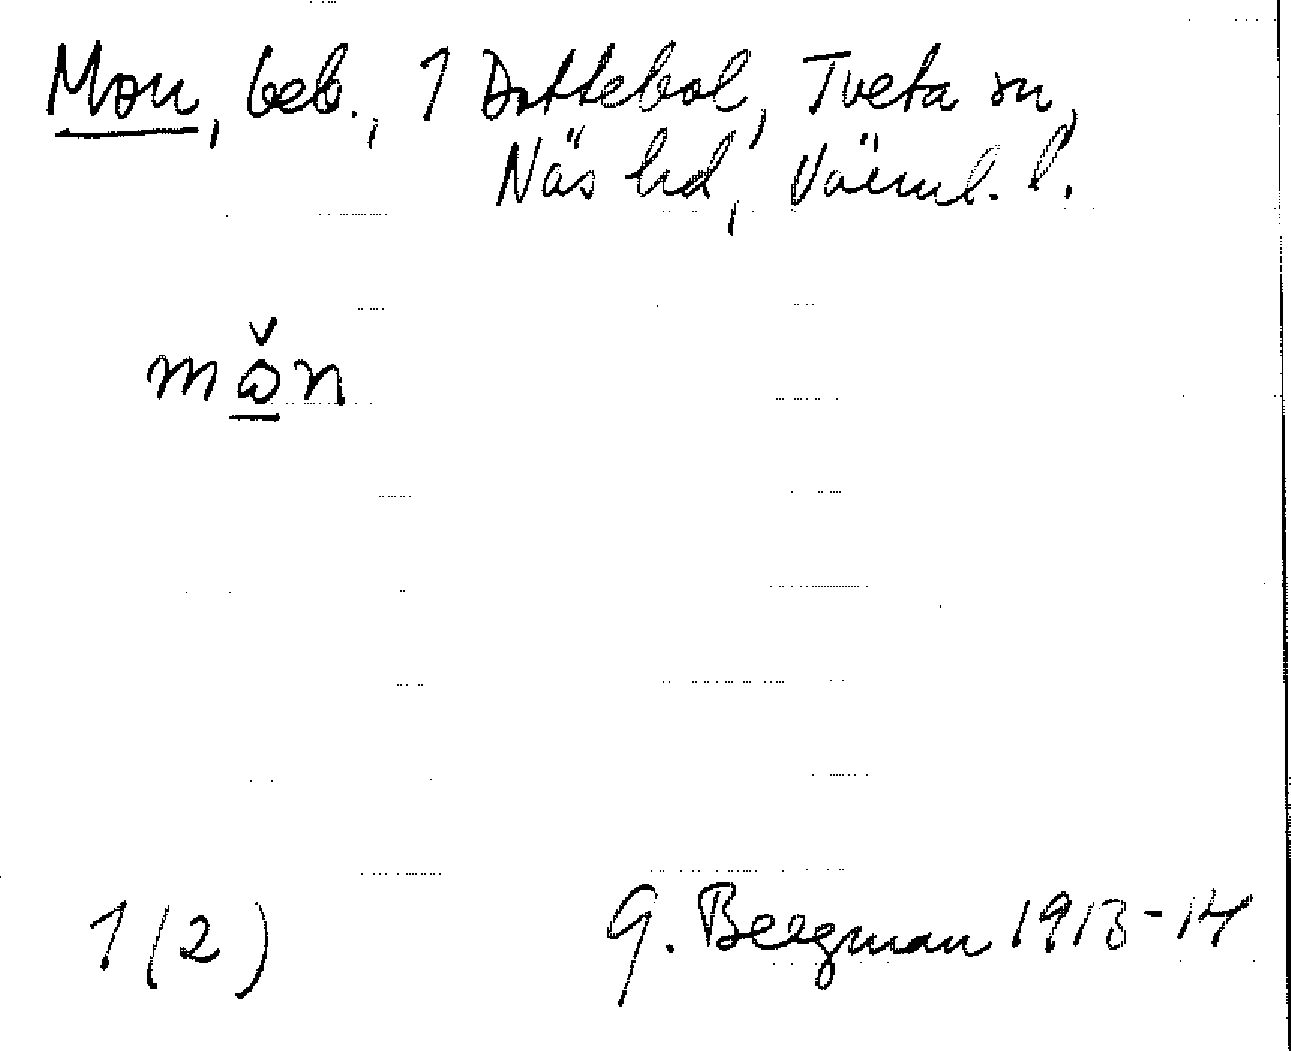 Mon, beb., 1 Dottebol, Tveta sn,
Näs hd, Värml. l.
mǒn
1 (2)
G. Bergman 1913-14